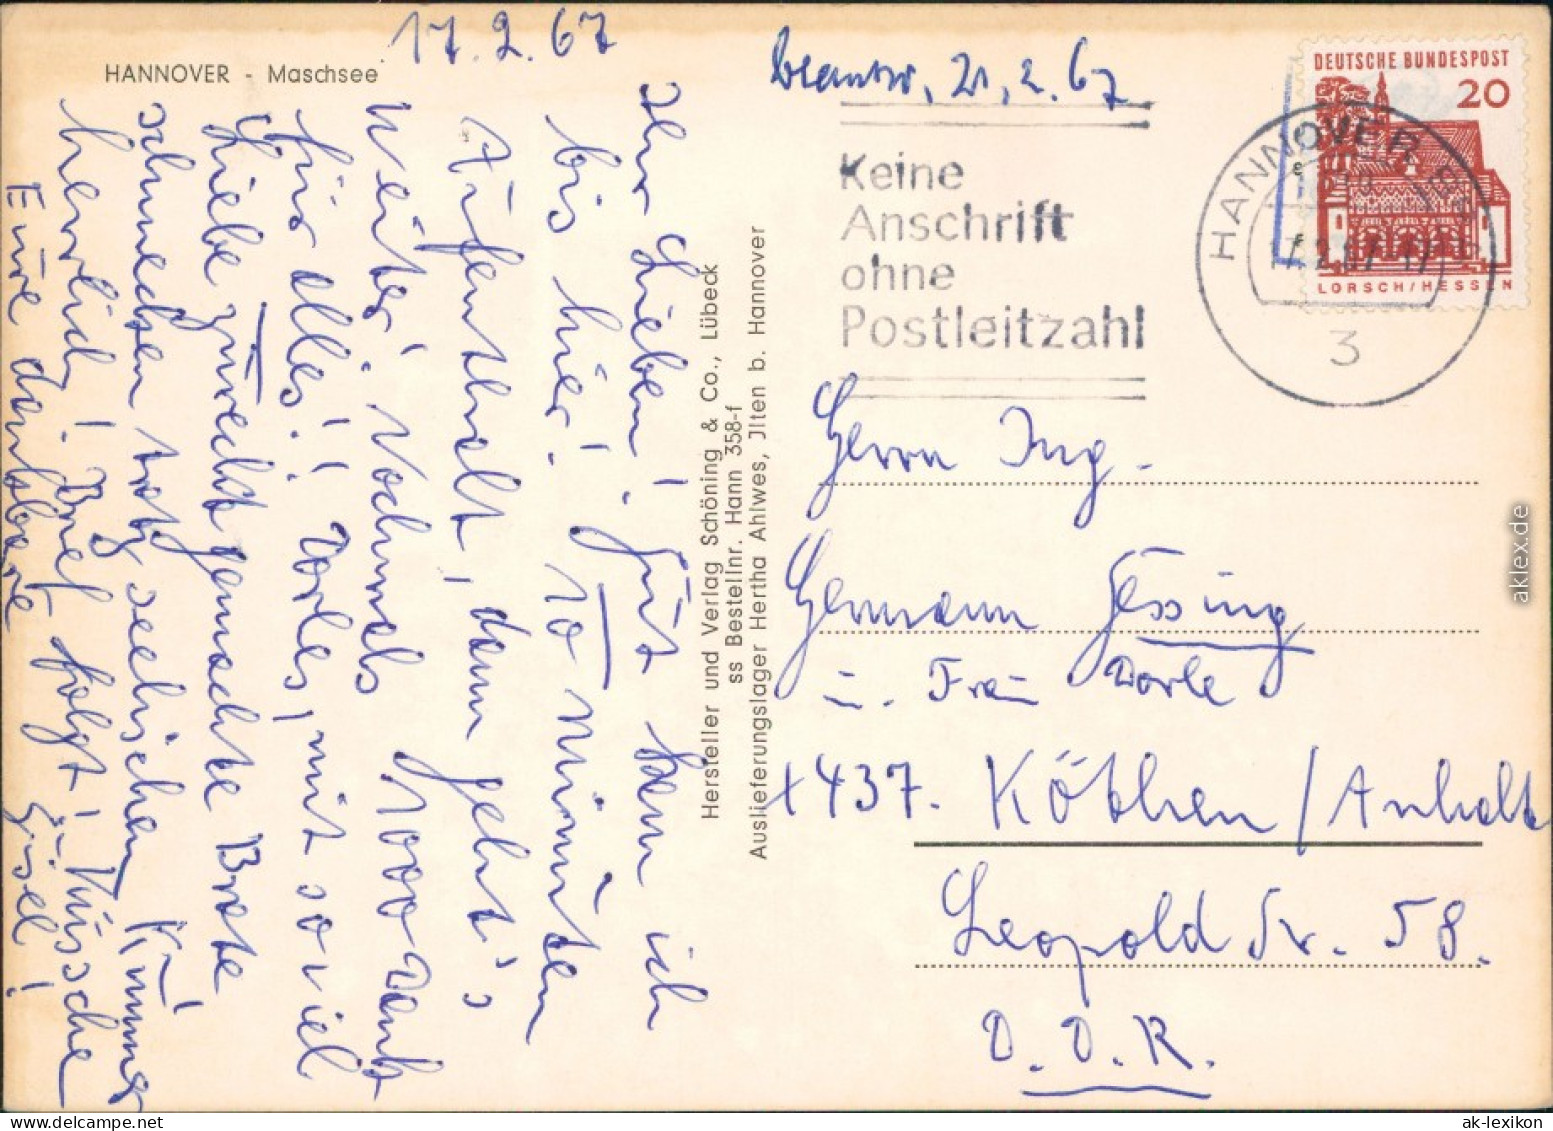 HANNOVER - Maschsee
17.2.67
Ihr Lieben! Gut kam ich
bis hier! 10 Minuten
Aufenthalt, dann geht's
weiter! Nochmals 1000 Dank
für alles!! Dorles, mit soviel
Liebe zurecht gemachte Brote
schmecken trotz seelischen Kummer
herrlich! Brief folgt! Küssche
Eure dankbare Gisel!
Hersteller und Verlag Schöning & Co., Lübeck
ss Bestellnr. Hann 358-f
Auslieferungslager Hertha Ahlwes, Jlten b. Hannover
21.2.67
Keine
Anschrift
ohne
Postleitzahl
DEUTSCHE BUNDESPOST
20
LORSCH/HESSEN
HANNOVER
3
Herrn Ing.
Hermann Gessing
u. Frau Dorle
x 437. Köthen/Anhalt
Leopold Str. 58.
D.D.R.
aklex.de
ak-lexikon